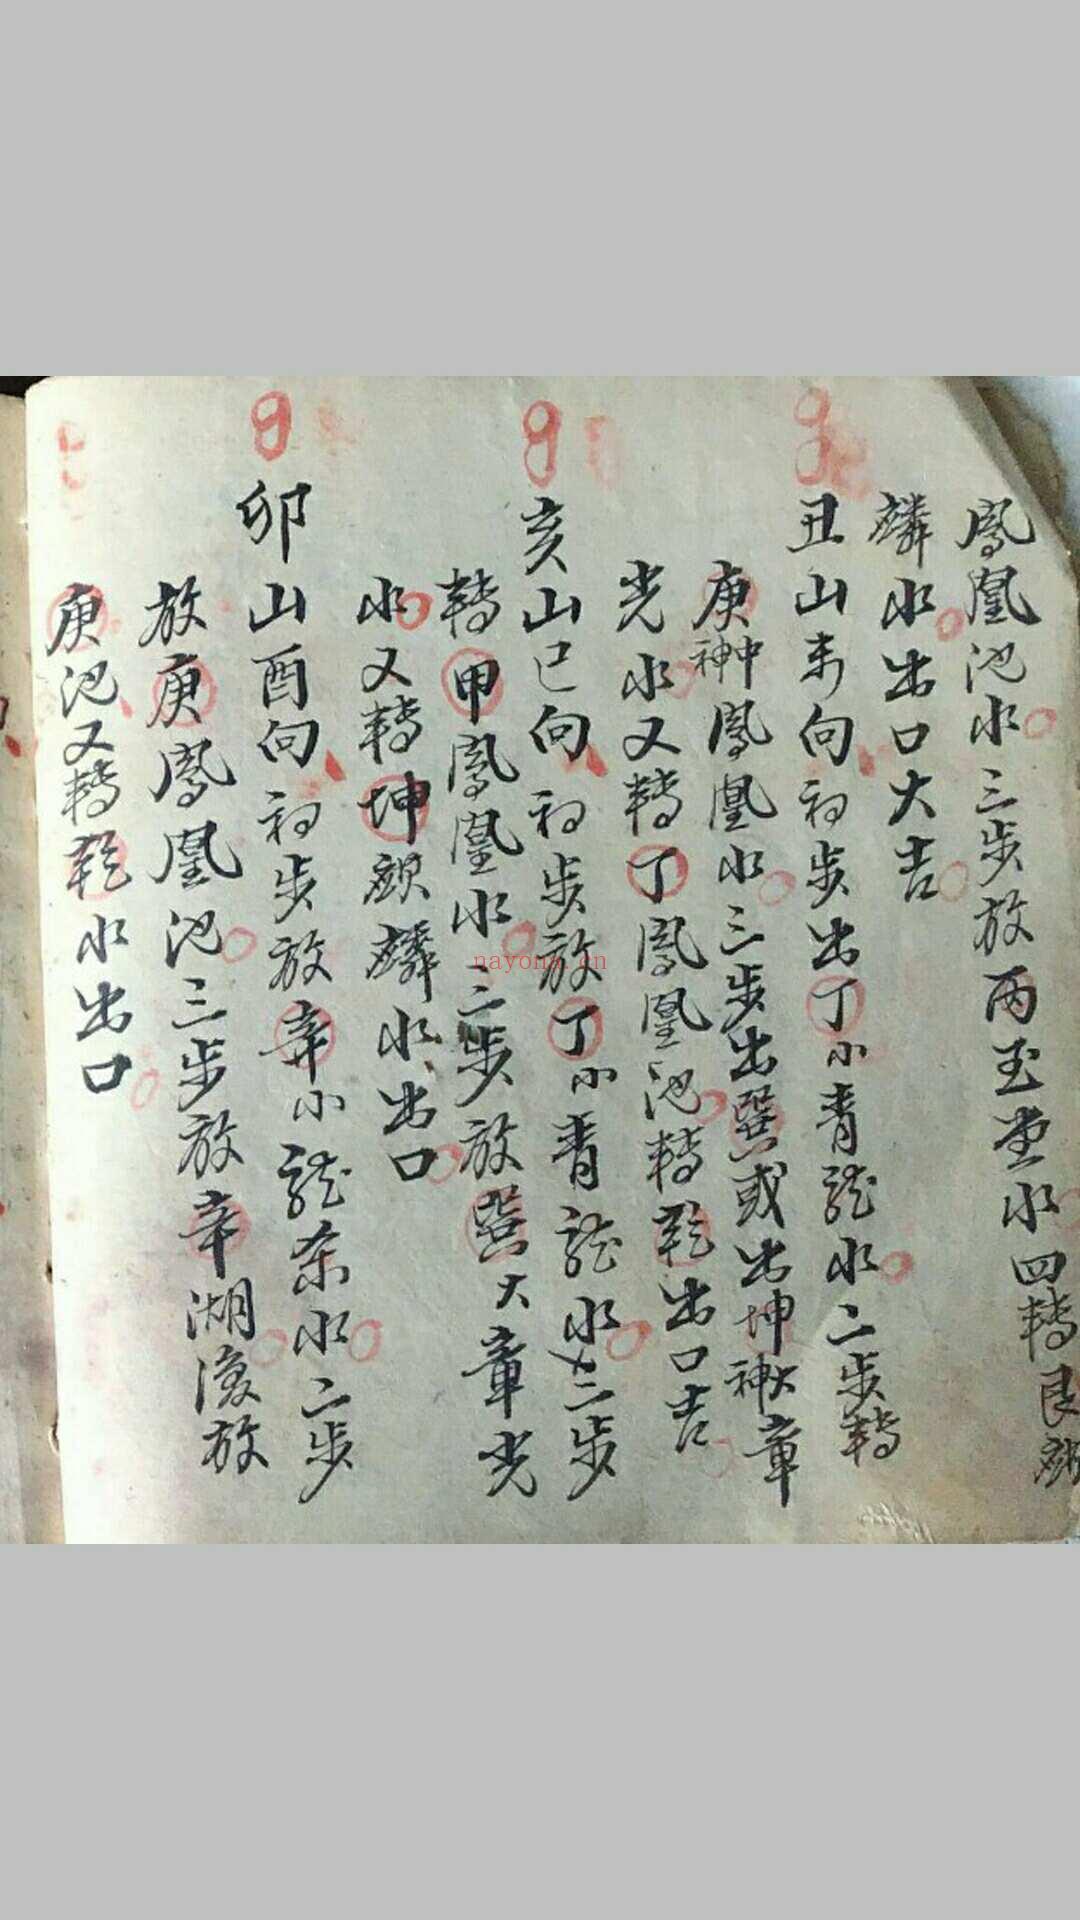 鳳凰池水三步放丙玉堂水四轉艮
麟水出口大吉
丑山未向初步出丁小青龍水二步轉
庚神中鳳凰水三步出巽或出坤神大章
光水又轉丁鳳凰池轉乾出口吉
亥山巳向初步放丁小青龍水三步
轉甲鳳凰水二步放巽大章光
水又轉坤麒麟水出口
卯山酉向初步放辛小龍水二步
放庚鳳凰池三步放辛湖後放
庚池又轉乾水出口
nayona.cn